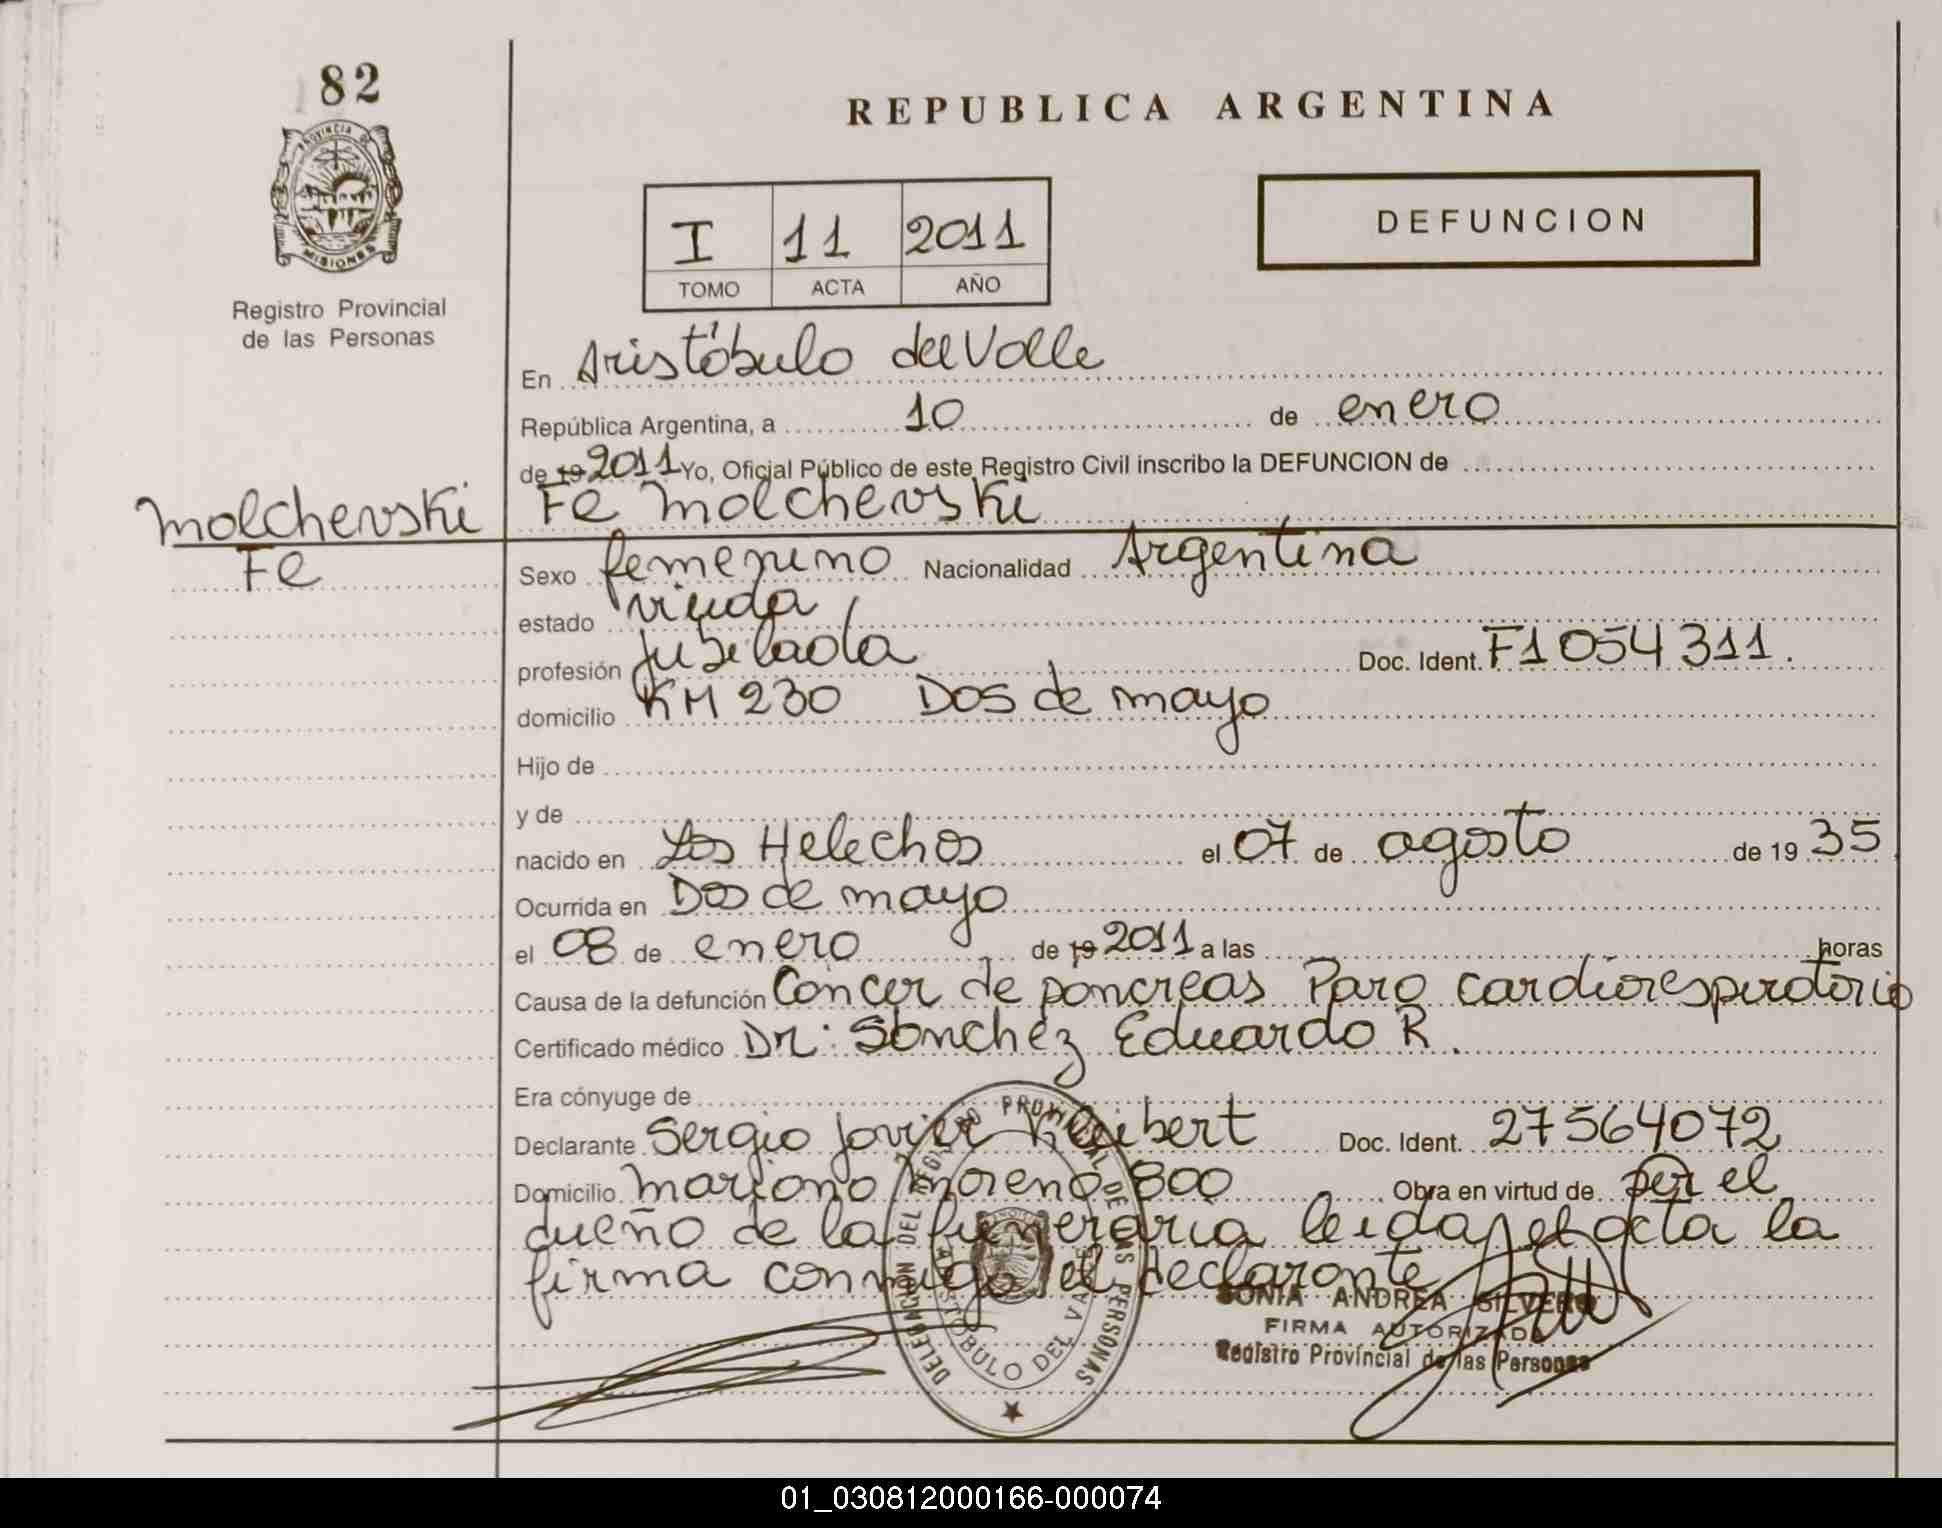 82
REPUBLICA ARGENTINA
PROVINCIA DE MISIONES
Registro Provincial
de las Personas
I 11 2011
TOMO ACTA AÑO
DEFUNCION
En Aristóbulo del Valle
República Argentina, a 10 de enero
de 19 2011 Yo, Oficial Público de este Registro Civil inscribo la DEFUNCION de
Molchevski Fe Molchevski
Fe
Sexo femenino Nacionalidad Argentina
estado viuda
profesión Jubilada Doc. Ident. F1054311.
domicilio KM 230 Dos de mayo
Hijo de
y de
nacido en Los Helechos el 07 de agosto de 19 35
Ocurrida en Dos de mayo
el 08 de enero de 19 2011 a las horas
Causa de la defunción Cáncer de páncreas Paro cardiorespiratorio
Certificado médico Dr: Sánchez Eduardo R.
Era cónyuge de
Declarante Sergio Javier Doc. Ident. 27564072
Domicilio Mariano Moreno 800 Obra en virtud de per el
dueño de la funeraria leida el acta la
firma conmigo el declarante
DELEGACION DEL REGISTRO PROVINCIAL DE LAS PERSONAS
ARISTOBULO DEL VALLE
SONIA ANDREA SILVERO
FIRMA AUTORIZADA
Registro Provincial de las Personas
01_030812000166-000074